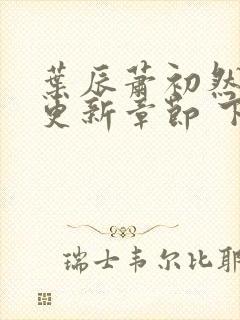 叶辰萧初然
更新章节 下
瑞士韦尔比耶